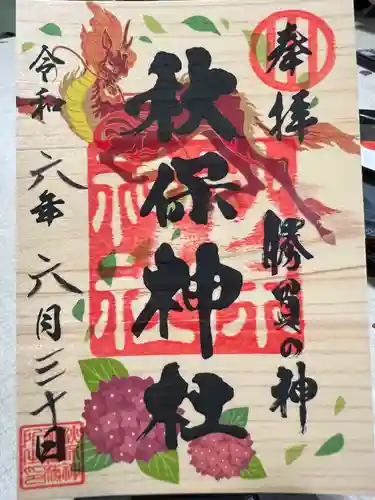 奉拝
勝負の神
秋保神社
令和六年六月三十日